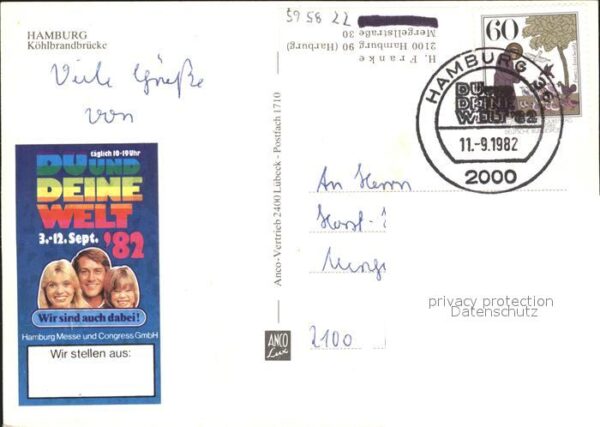 HAMBURG
Köhlbrandbrücke
Viele Grüße
von
täglich 10-19 Uhr
DU UND
DEINE
WELT
3.-12. Sept. '82
Wir sind auch dabei!
Hamburg Messe und Congress GmbH
Wir stellen aus:
Anco-Vertrieb 2400 Lübeck - Postfach 1710
ANCO
Lux
59 58 22
H. Franke
2100 Hamburg 90 (Harburg)
Mergellstraße 30
60
HAMBURG
DU UND
DEINE
WELT '82
11.-9.1982
2000
An Herrn
Horst-
2100
privacy protection
Datenschutz